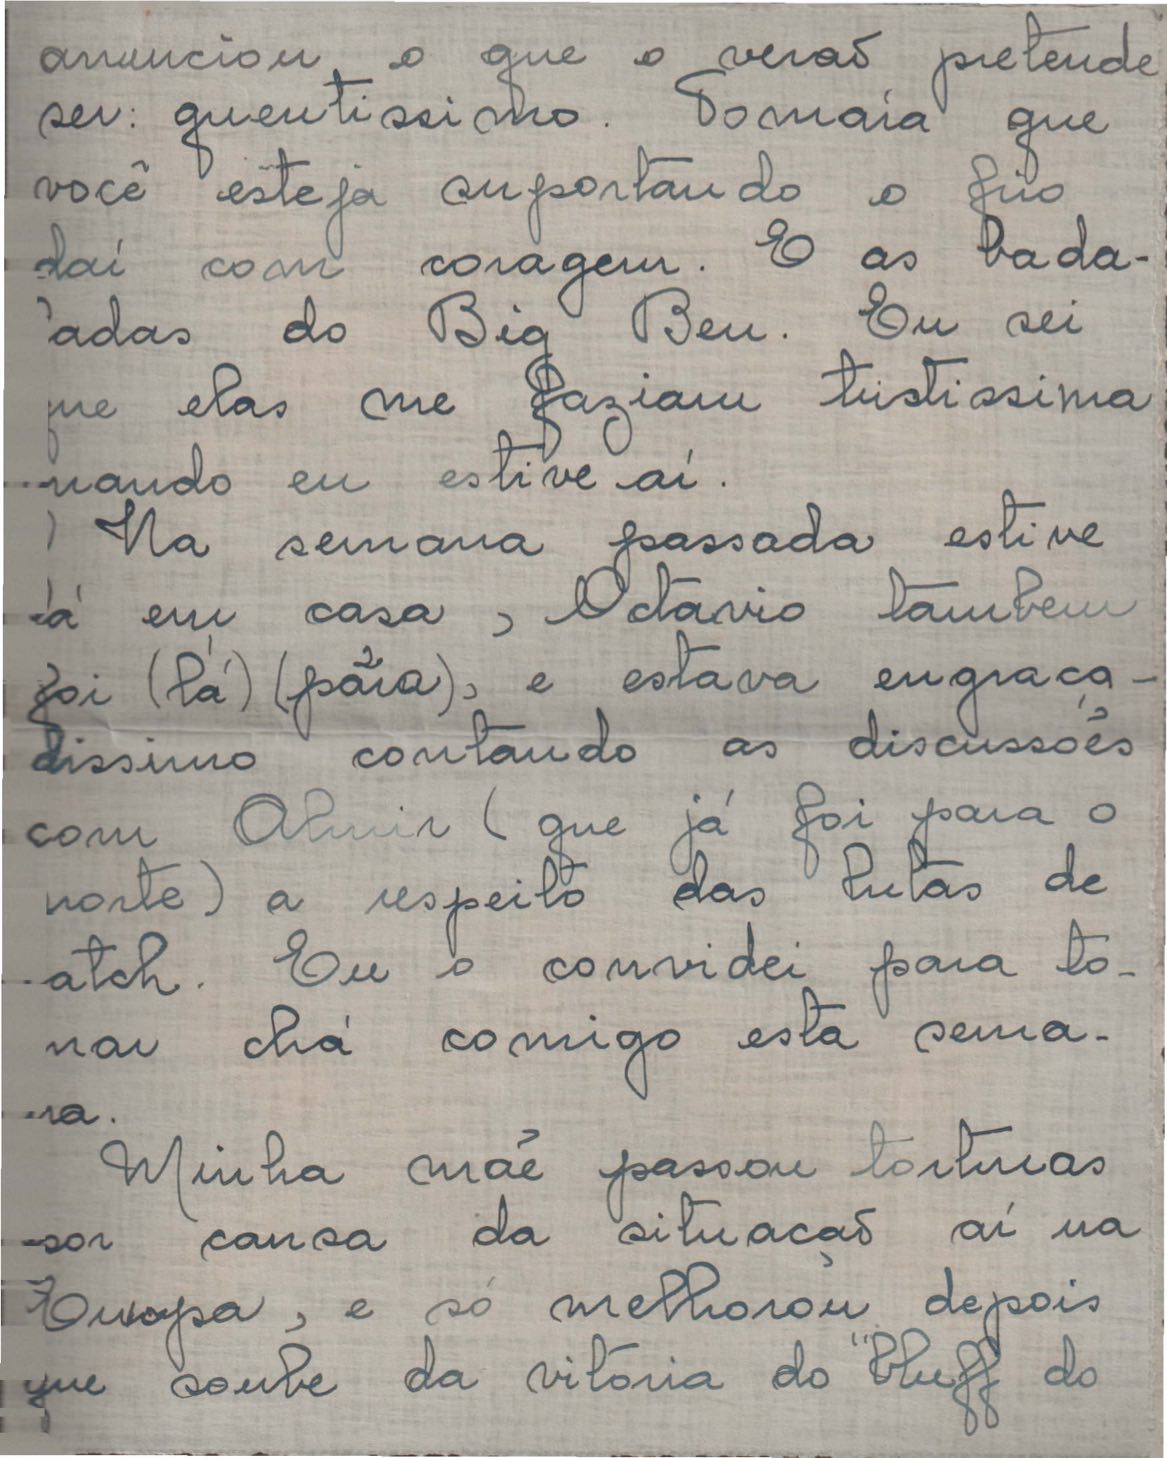 anunciou o que o verão pretende
ser: quentissimo. Tomára que
você esteja suportando o frio
daí com coragem. E as bada-
adas do Big Ben. Eu sei
que elas me faziam tristissima
uando eu estive aí.
Na semana passada estive
lá em casa, Octavio tambem
foi (lá) (pára), e estava engraça-
dissimo contando as discussões
com Almir (que já foi para o
norte) a respeito das lutas de
atch. Eu o convidei para to-
mar chá comigo esta sema-
na.
Minha mãe passou torturas
por causa da situação aí na
Europa, e só melhorou depois
que soube da vitória do "bluff do